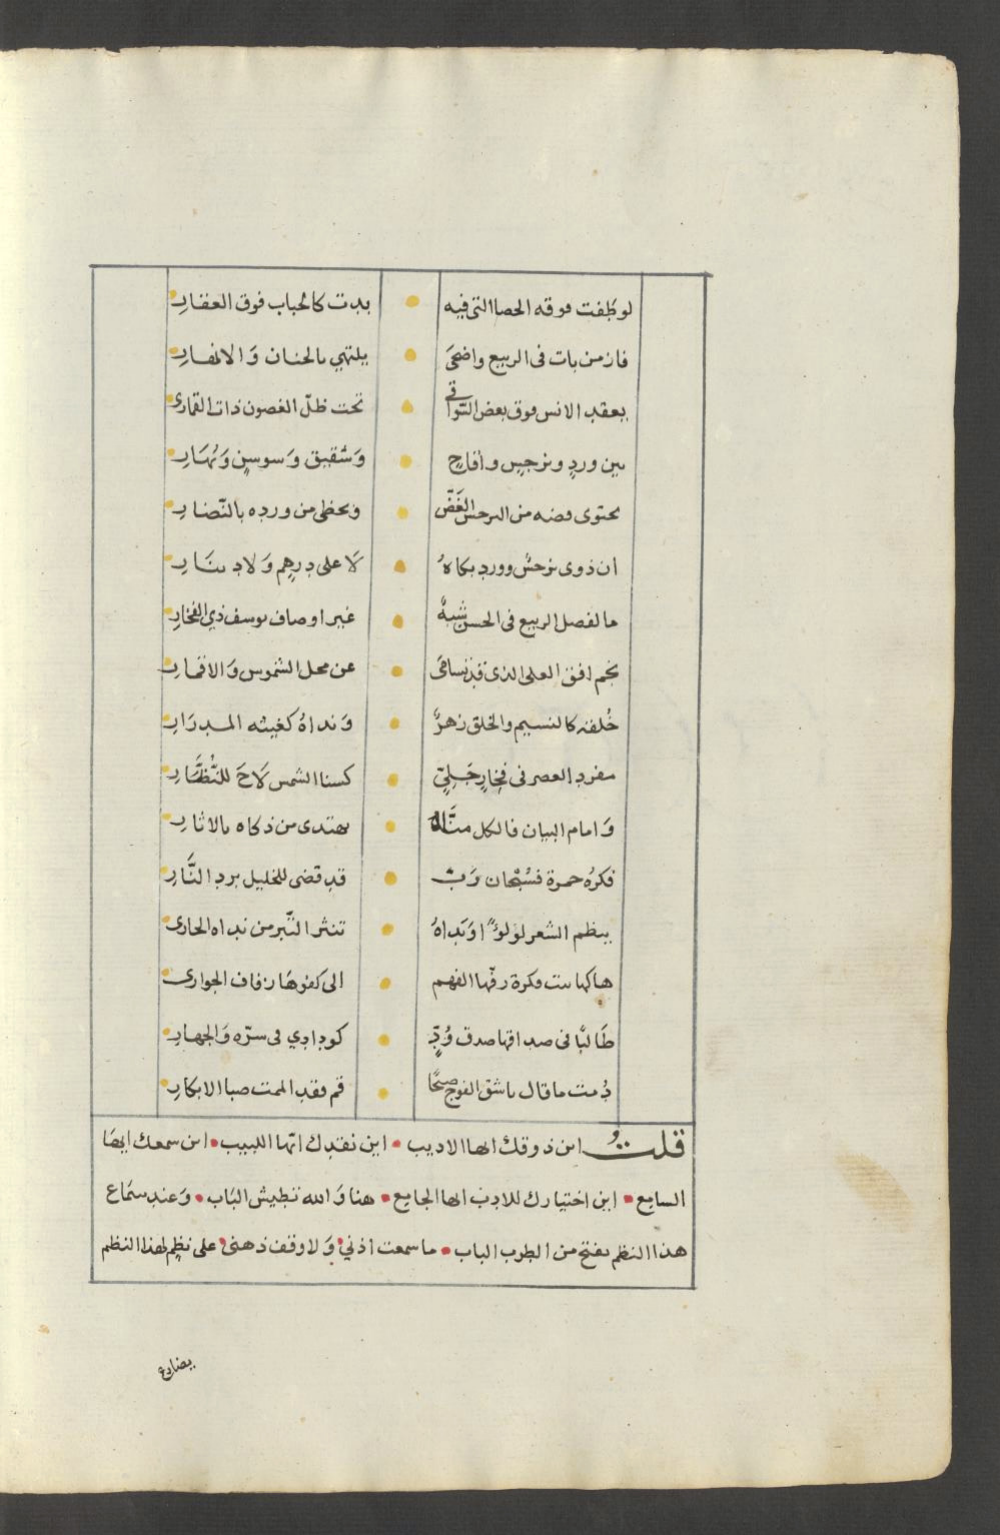 لو طَفت فوقه الحصا التي فيه • بدت كالحباب فوق العقارِ
فاز من بات فى الربيع واضحَى • يلتهي بالحنان وَالازهارِ
بعقد الانس فوق بعض التّواقي • تحت ظلّ الغصون ذات القمارى
بين وردٍ ونرجسٍ واقاحٍ • وَشقيق وَسوسنٍ وَبَهَارِ
يحتوى فضه من النرجس الغَضّ • ويحظى من ورده بالنّضارِ
ان ذوى نرجسٌ وورد بكاهُ • لَا على درهم وَلا دينَارِ
ما لفصل الربيع فى الحسن شبهٌ • غير اوصاف يوسف ذي الفخارِ
نجم افق العلى الذى قد تسامَى • عن محل الشموس وَالاقمارِ
خُلقه كالنسيم والخلق زهرٌ • وَنداهُ كغيثه المدرَارِ
مفرد العصر فى فخارٍ جَلِيّ • كسنا الشمس لَاحَ للنُّظَّارِ
وَامام البيان فالكل منَّا • يهتدى من ذكاه بالاثارِ
فكرُه جمرة فسُبْحان رَبّ • قد قضى للخليل برد النَّارِ
ينظم الشعر لؤلؤًا وَنداهُ • تنثر التّبر من نداه الجارى
هاكها بنت فكرة زفّها الفهم • الى كفوهَا زفاف الجوارى
طَالبًا فى صداقها صدق وُدٍّ • كودادي فى سرّه وَالجهارِ
دُمت ما قال ناشق الفوح صبحًا • قم فقد المت صبا الابكارِ
قلتُ اين ذوقك ايها الاديب • اين نقدك ايّها اللبيب • اين سمعك ايهَا
السامع • اين اختيارك للادب ايها الجامع • هنا وَالله تطيش البَاب • وَعند سمَاع
هذا النظم يفتح من الطرب الباب • ما سمعت اذني • وَلا وقف ذهنى • على نظمٍ لهذا النظم
يضارع